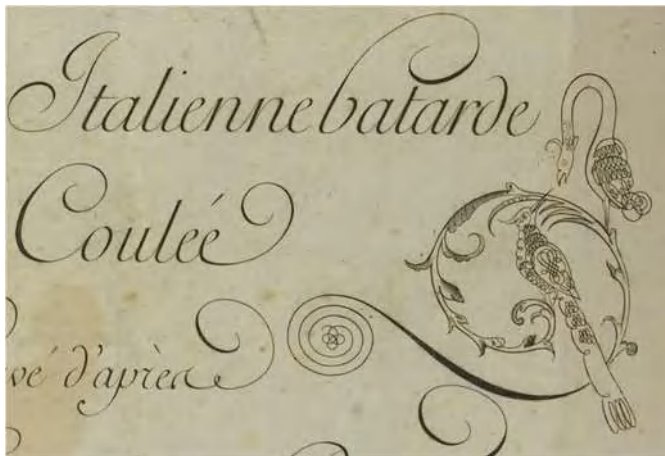 Italienne batarde
Couleé
vé d'après